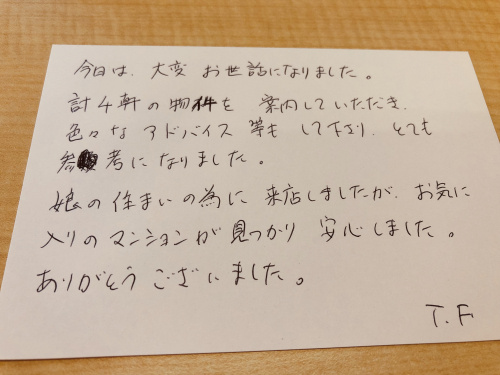 今日は、大変 お世話になりました。
計4軒の物件を 案内していただき、
色々な アドバイス 等も して下さり、とても
参考になりました。
娘の住まいの為に 来店しましたが、お気に
入りのマンションが見つかり 安心しました。
ありがとうございました。
T.F